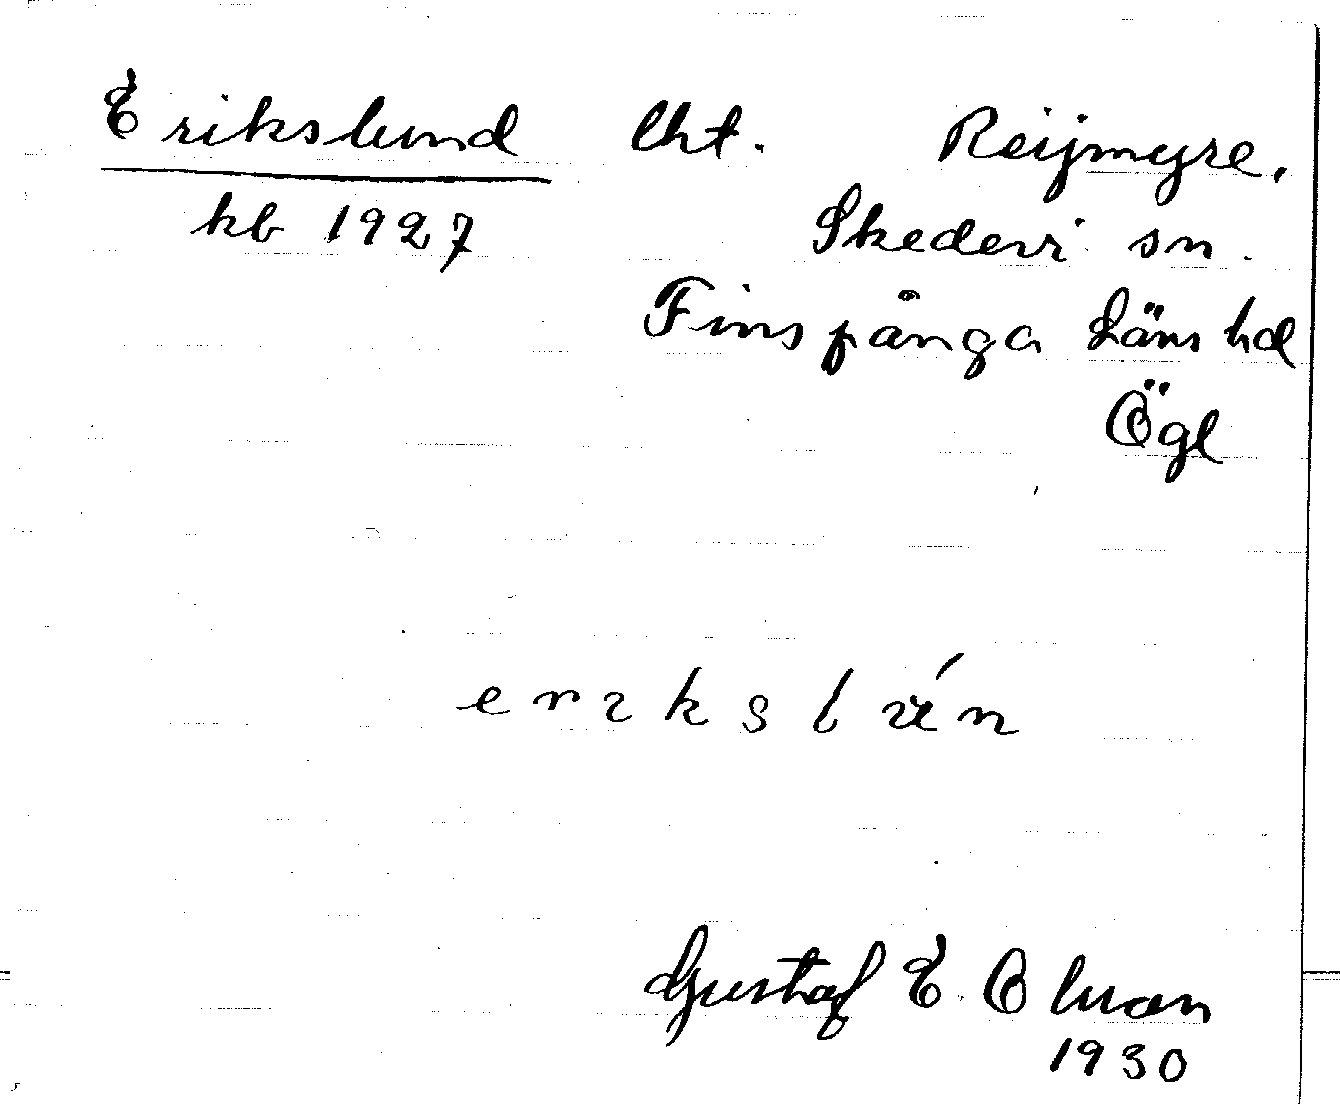 Erikslund lht. Reijmyre.
kb 1927 Skedevi sn.
Finspånga Läns hd
Ögl
Gustaf E. Olson
1930